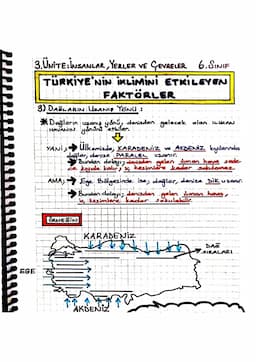 3.ÜNİTE: İNSANLAR, YERLER VE ÇEVRELER 6.SINIF
TÜRKİYE'NİN İKLİMİNİ ETKİLEYEN
FAKTÖRLER
3) DAĞLARIN UZANIŞ YÖNÜ:
Dağların uzanış yönü, denizden gelecek olan ILIMAN
HAVANIN yönünü etkiler.
YANİ; → Ülkemizde, KARADENİZ ve AKDENİZ kıyılarında
dağlar, denize PARALEL uzanır.
→ Bundan dolayı; denizden gelen ılıman hava sade-
ce kıyıda kalır; iç kesimlere kadar sokulamaz.
AMA; → Ege Bölgesinde ise, dağlar, denize DİK uzanır.
→ Bundan dolayı; denizden gelen ılıman hava,
iç kesimlere kadar sokulabilir.
ÖRNEĞİN:
KARADENİZ
DAĞ
SIRALARI
EGE
AKDENİZ